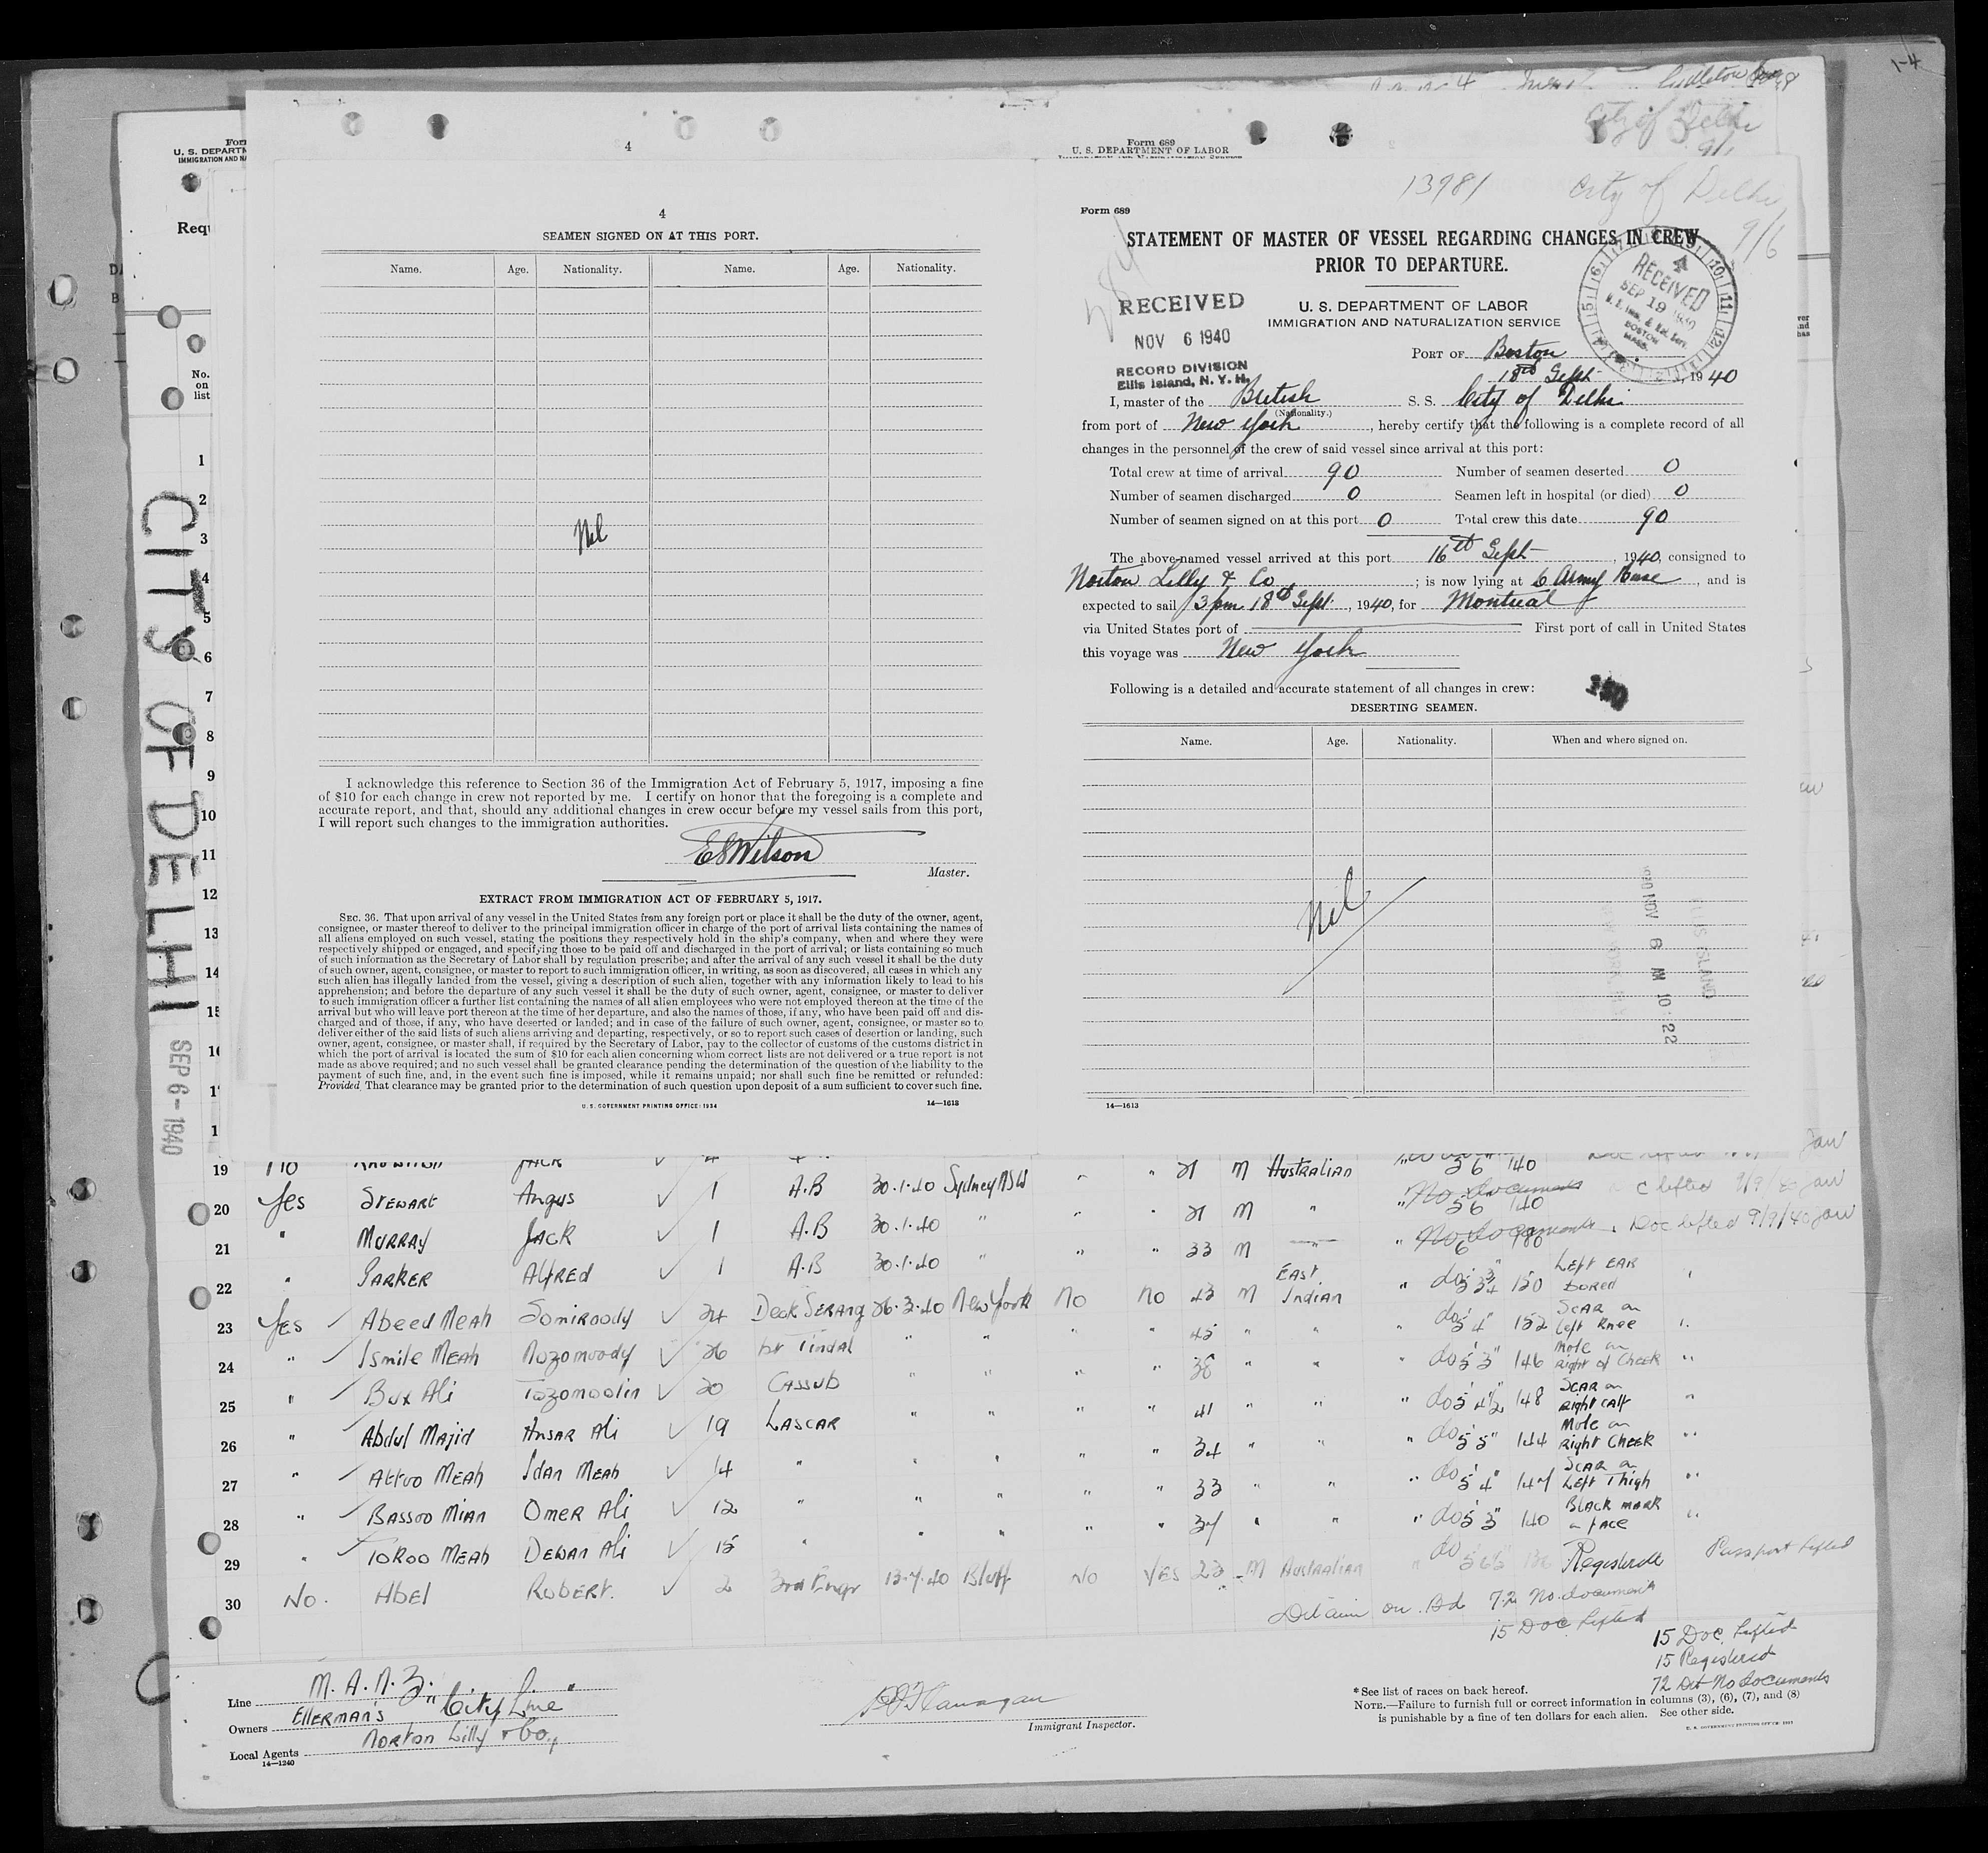 1-4
City of Delhi
9/
Form 689
U. S. DEPARTMENT OF LABOR
4
Form
U. S. DEPARTM
IMMIGRATION AND NA
Requ
No.
on
list
CITY OF DELHI
SEP 6 - 1940
4
SEAMEN SIGNED ON AT THIS PORT.
Name. Age. Nationality. Name. Age. Nationality.
Nil
I acknowledge this reference to Section 36 of the Immigration Act of February 5, 1917, imposing a fine
of $10 for each change in crew not reported by me. I certify on honor that the foregoing is a complete and
accurate report, and that, should any additional changes in crew occur before my vessel sails from this port,
I will report such changes to the immigration authorities.
ESWilson
Master.
EXTRACT FROM IMMIGRATION ACT OF FEBRUARY 5, 1917.
SEC. 36. That upon arrival of any vessel in the United States from any foreign port or place it shall be the duty of the owner, agent,
consignee, or master thereof to deliver to the principal immigration officer in charge of the port of arrival lists containing the names of
all aliens employed on such vessel, stating the positions they respectively hold in the ship's company, when and where they were
respectively shipped or engaged, and specifying those to be paid off and discharged in the port of arrival; or lists containing so much
of such information as the Secretary of Labor shall by regulation prescribe; and after the arrival of any such vessel it shall be the duty
of such owner, agent, consignee, or master to report to such immigration officer, in writing, as soon as discovered, all cases in which any
such alien has illegally landed from the vessel, giving a description of such alien, together with any information likely to lead to his
apprehension; and before the departure of any such vessel it shall be the duty of such owner, agent, consignee, or master to deliver
to such immigration officer a further list containing the names of all alien employees who were not employed thereon at the time of the
arrival but who will leave port thereon at the time of her departure, and also the names of those, if any, who have been paid off and dis-
charged and of those, if any, who have deserted or landed; and in case of the failure of such owner, agent, consignee, or master so to
deliver either of the said lists of such aliens arriving and departing, respectively, or so to report such cases of desertion or landing, such
owner, agent, consignee, or master shall, if required by the Secretary of Labor, pay to the collector of customs of the customs district in
which the port of arrival is located the sum of $10 for each alien concerning whom correct lists are not delivered or a true report is not
made as above required; and no such vessel shall be granted clearance pending the determination of the question of the liability to the
payment of such fine, and, in the event such fine is imposed, while it remains unpaid; nor shall such fine be remitted or refunded:
Provided, That clearance may be granted prior to the determination of such question upon deposit of a sum sufficient to cover such fine.
U. S. GOVERNMENT PRINTING OFFICE: 1934 14—1613
13981 City of Delhi
9/6
Form 689
STATEMENT OF MASTER OF VESSEL REGARDING CHANGES IN CREW
PRIOR TO DEPARTURE.
RECEIVED
NOV 6 1940
RECORD DIVISION
Ellis Island, N. Y. H.
U. S. DEPARTMENT OF LABOR
IMMIGRATION AND NATURALIZATION SERVICE
RECEIVED
SEP 19 1940
BOSTON
MASS.
PORT OF Boston
18th Sept, 1940
I, master of the British S. S. City of Delhi
(Nationality.)
from port of New York, hereby certify that the following is a complete record of all
changes in the personnel of the crew of said vessel since arrival at this port:
Total crew at time of arrival 90 Number of seamen deserted 0
Number of seamen discharged 0 Seamen left in hospital (or died) 0
Number of seamen signed on at this port 0 Total crew this date 90
The above-named vessel arrived at this port 16th Sept, 1940, consigned to
Norton Lilly & Co; is now lying at 6 Army Base, and is
expected to sail 3 pm 18th Sept., 1940, for Montreal
via United States port of First port of call in United States
this voyage was New York
Following is a detailed and accurate statement of all changes in crew:
DESERTING SEAMEN.
Name. Age. Nationality. When and where signed on.
Nil
1940 NOV 6 AM 10 22
ELLIS ISLAND
14—1613
1
2
3
4
5
6
7
8
9
10
11
12
13
14
19 No JACK 21 M Australian 56 140
20 Yes STEWART Angus 1 A.B 30.1.40 Sydney NSW " " 21 M " " No documents 56 140 lifted 9/9/40
21 " MURRAY JACK 1 A.B 30.1.40 " " " 33 M " " No documents 6 180 Doc lifted 9/9/40
22 " PARKER Alfred 1 A.B 30.1.40 "
23 Yes Abeed Meah Somiroody 24 Deck Serang 26.3.40 New York No No 43 M East Indian " do 150 Left ear bored
24 " Ismile Meah Nozomoody 26 1st Tindal " " " " 45 " " " do 5 4" 152 Scar on Left Knee
25 " Bux Ali Tozomoolin 20 Cassub " " " " 38 " " " do 5 3" 146 Mole on Right of Cheek
26 " Abdul Majid Ansar Ali 19 LASCAR " " " " 41 " " " do 148 Scar on Right Calf
27 " Attoo Meah Idan Meah 14 " " " " " 34 " " " do 5 5" 144 Mole on Right Cheek
28 " Bassoo Mian Omer Ali 12 " " " " " 33 " " " do 5 4" 147 Scar on Left Thigh
29 " Toroo Meah Dewan Ali 15 " " " " " 37 " " " do 5 3" 140 Black mark on face
30 No. Abel Robert. 2 3rd Engr 13.7.40 Bluff No Yes 23 M Australian Registered Passport lifted
Detain on Bd 72 No documents
15 Doc Lifted
15 Doc. Lifted
15 Registered
72 Det No Documents
Line M.A.N.Z.
Owners Ellerman's "City Line"
Local Agents Norton Lilly & Co.,
14—1240
Immigrant Inspector.
*See list of races on back hereof.
NOTE.—Failure to furnish full or correct information in columns (3), (6), (7), and (8)
is punishable by a fine of ten dollars for each alien. See other side.